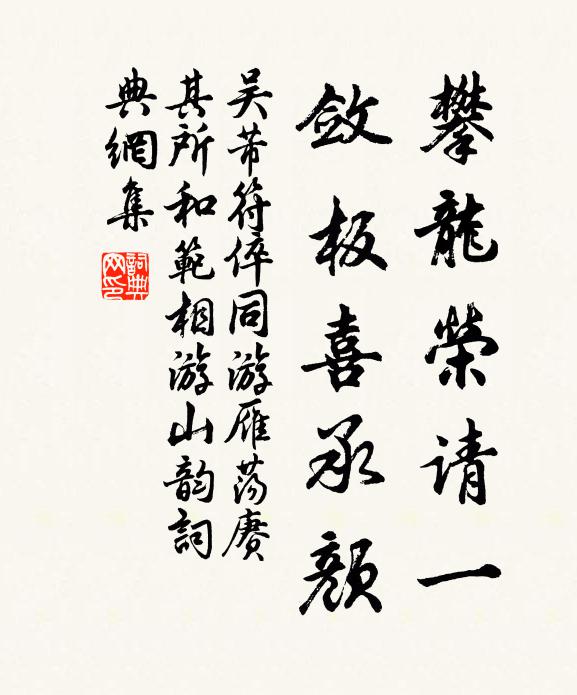 攀龍榮请一
斂板喜承顏
吴芾符倅同游雁荡赓
其所和範相游山韵詞
典網集
詞典
网印